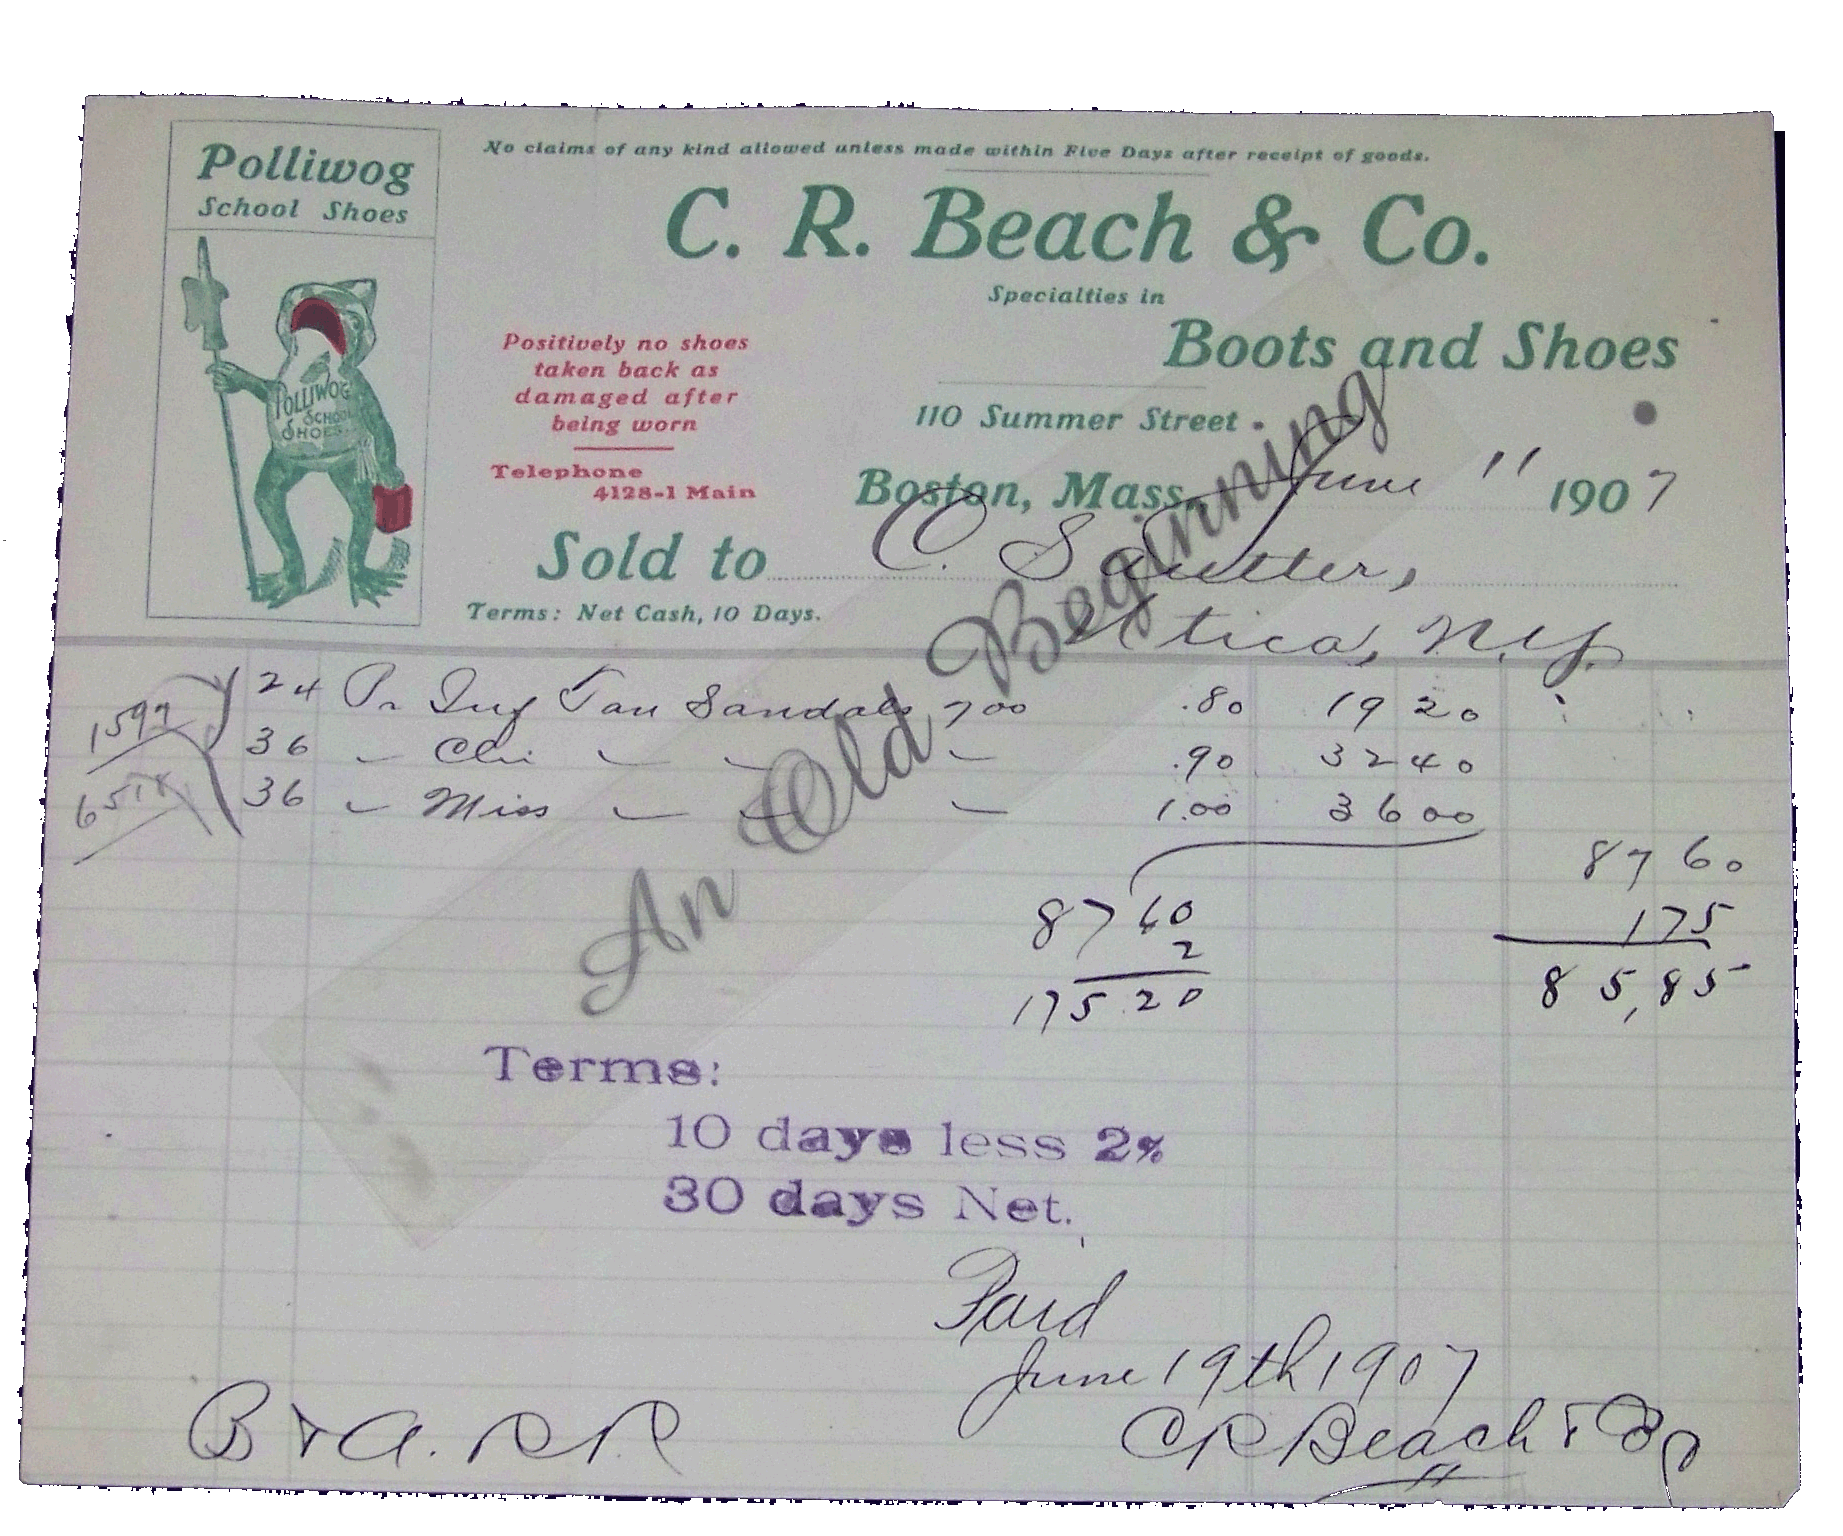 Polliwog
School Shoes
POLLIWOG
SCHOOL
SHOES
No claims of any kind allowed unless made within Five Days after receipt of goods.
C. R. Beach & Co.
Specialties in
Boots and Shoes
Positively no shoes
taken back as
damaged after
being worn
Telephone
4128-1 Main
110 Summer Street
Boston, Mass., June 11 1907
Sold to C. Sautter,
Terms: Net Cash, 10 Days.
Utica, N.Y.
24 Pr Inf Tan Sandals 700 .80 19 20
36 " Chi " " " .90 32 40
36 " Miss " " " 1.00 36 00
1597
87 60
87 60
2
175 20
1 75
85,85
An Old Beginning
Terms:
10 days less 2%
30 days Net.
Paid
June 19th 1907
C R Beach & Co
B & A. R R